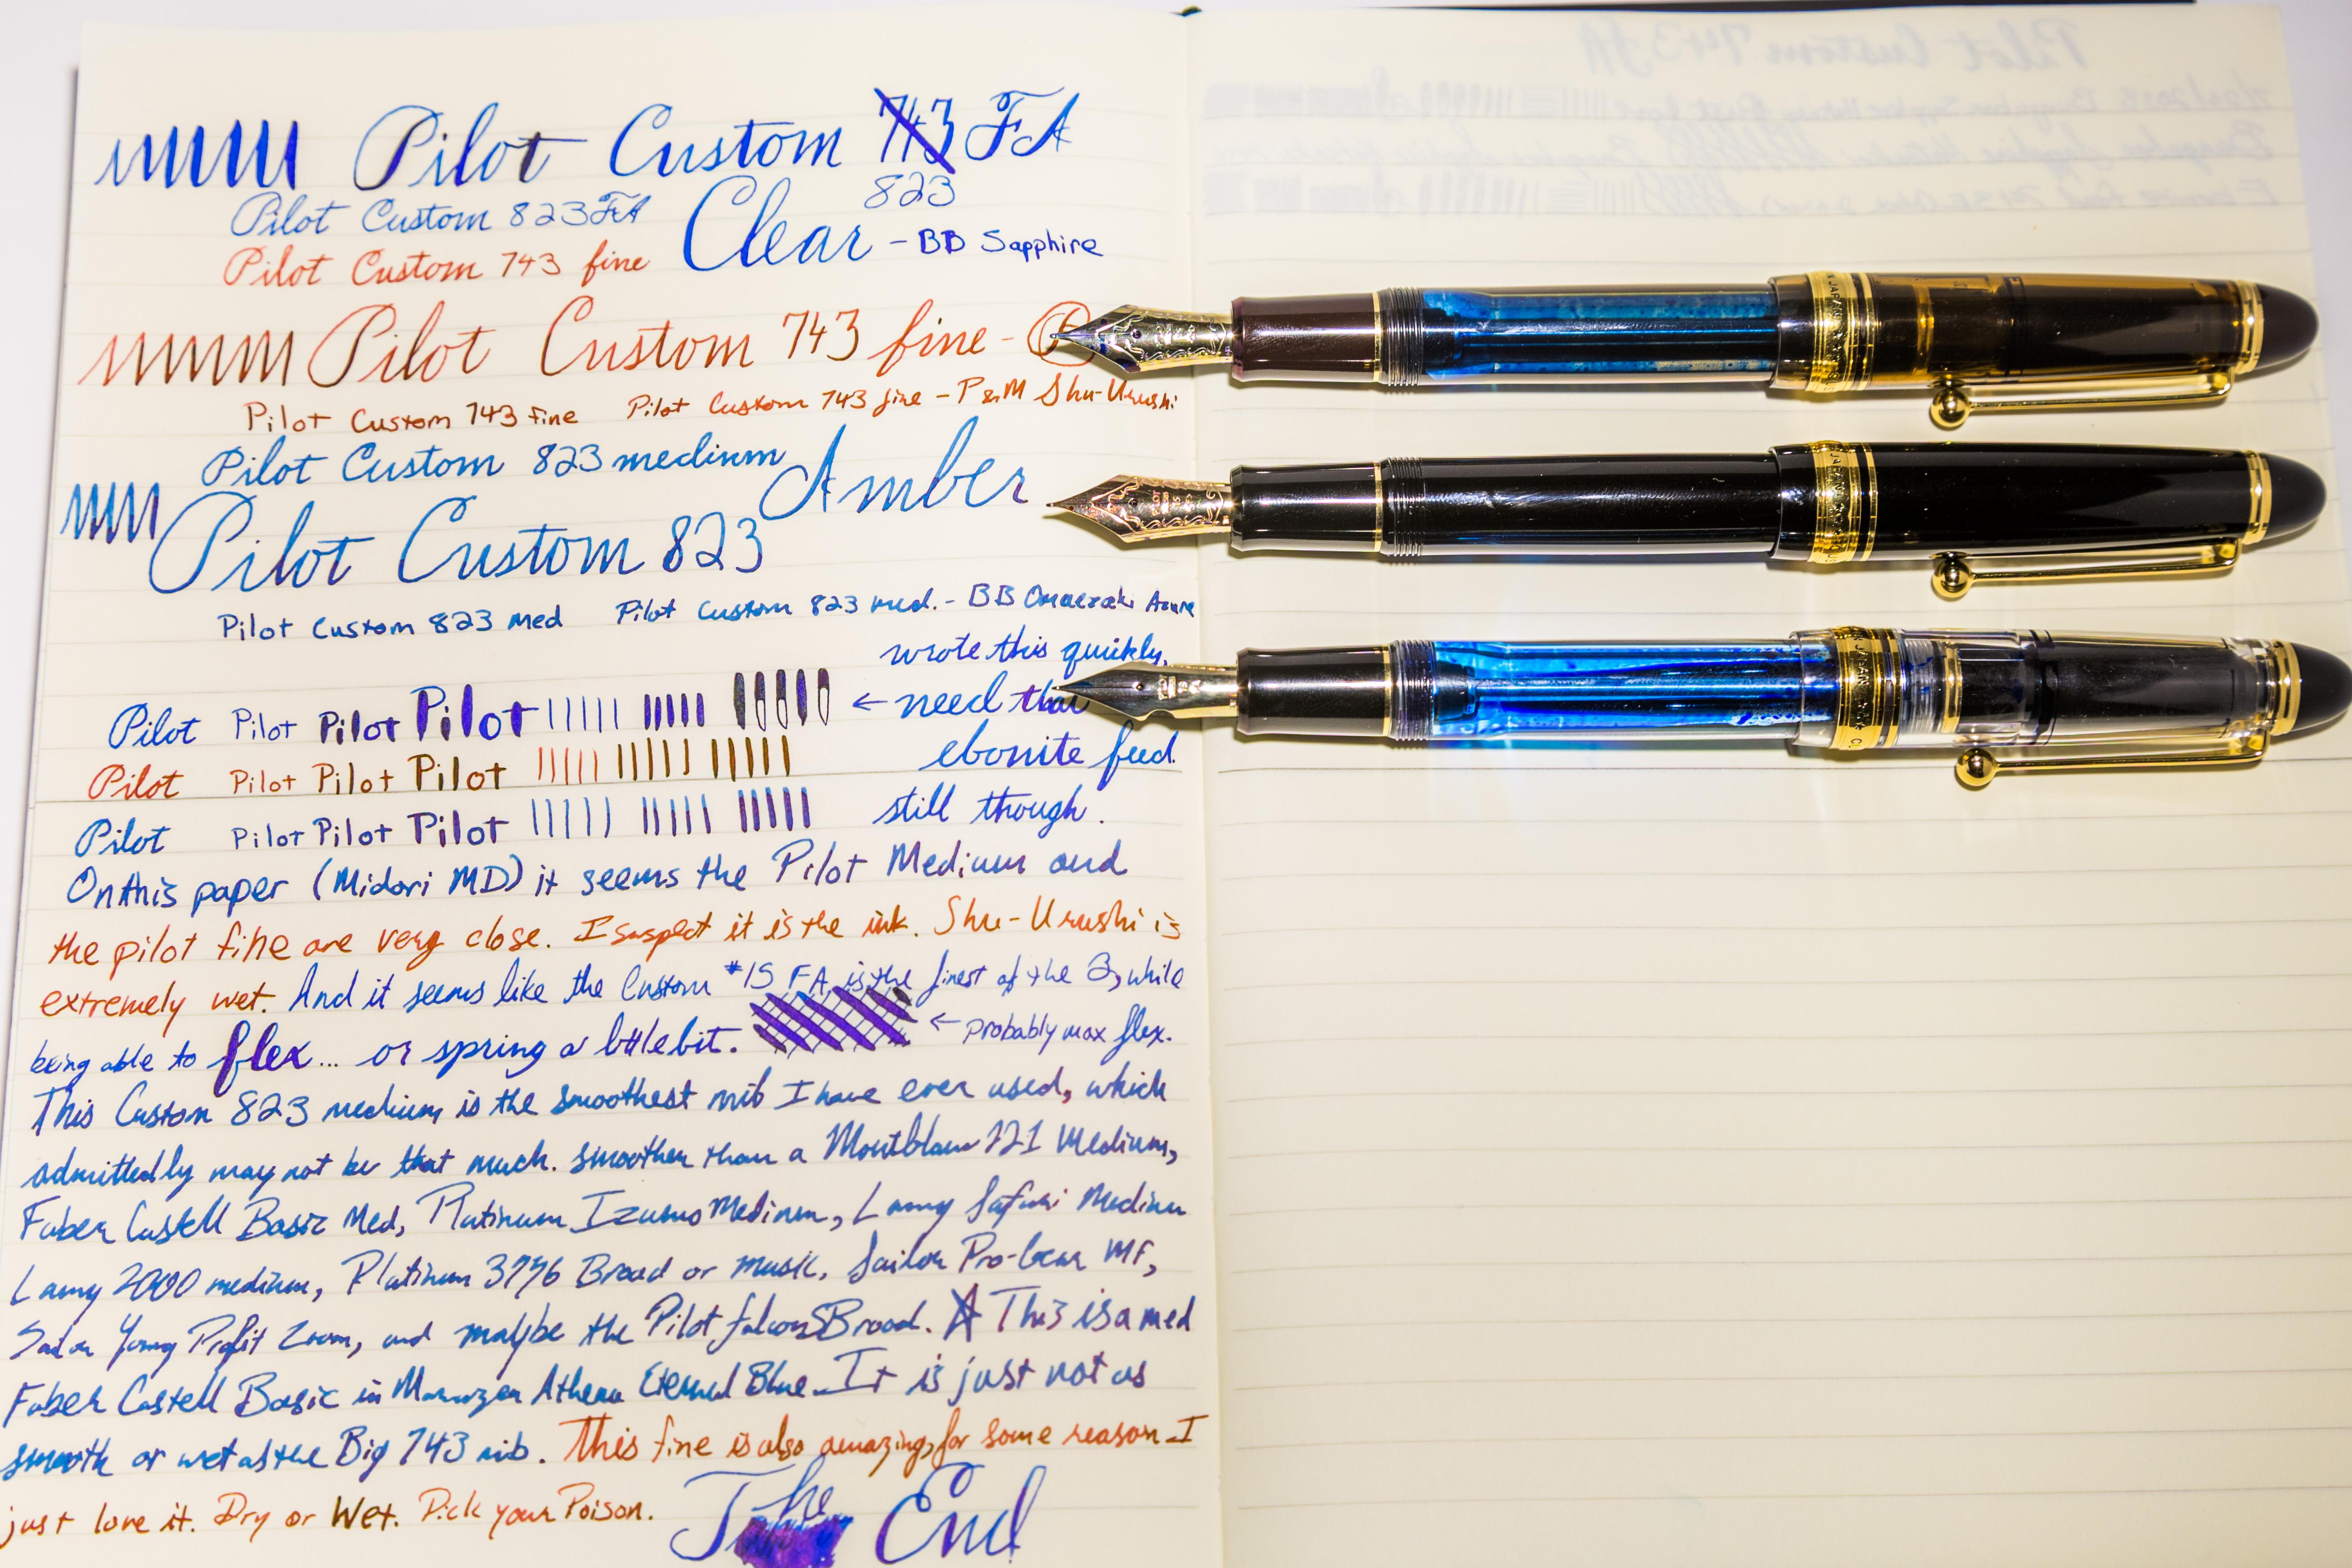 Pilot Custom 743 FA
823
Pilot Custom 823 FA
Clear - BB Sapphire
Pilot Custom 743 fine
Pilot Custom 743 fine - F
Pilot Custom 743 fine Pilot Custom 743 fine - P&M Shu-Urushi
Pilot Custom 823 medium
Amber
Pilot Custom 823
Pilot Custom 823 med Pilot Custom 823 med. - BB Omaezaki Azure
wrote this quickly,
Pilot Pilot Pilot Pilot ← need that
ebonite feed.
Pilot Pilot Pilot Pilot
still though.
Pilot Pilot Pilot Pilot
On this paper (Midori MD) it seems the Pilot Medium and
the pilot fine are very close. I suspect it is the ink. Shu-Urushi is
extremely wet. And it seems like the Custom #15 FA, is the finest of the 3, while
being able to flex... or spring a little bit. ← probably max flex.
This Custom 823 medium is the smoothest nib I have ever used, which
admittedly may not be that much. smoother than a Montblanc 121 Medium,
Faber Castell Basic Med, Platinum Izumo Medium, Lamy Safari Medium
Lamy 2000 medium, Platinum 3776 Broad or music, Sailor Pro-Gear MF,
Sailor Young Profit Zoom, and maybe the Pilot falcon SBroad. ☆ This is a med
Faber Castell Basic in Maruzen Athena Eternal Blue. It is just not as
smooth or wet as the Big 743 nib. This fine is also amazing, for some reason I
just love it. Dry or Wet. Pick your Poison.
The End
Pilot Custom 743 FA